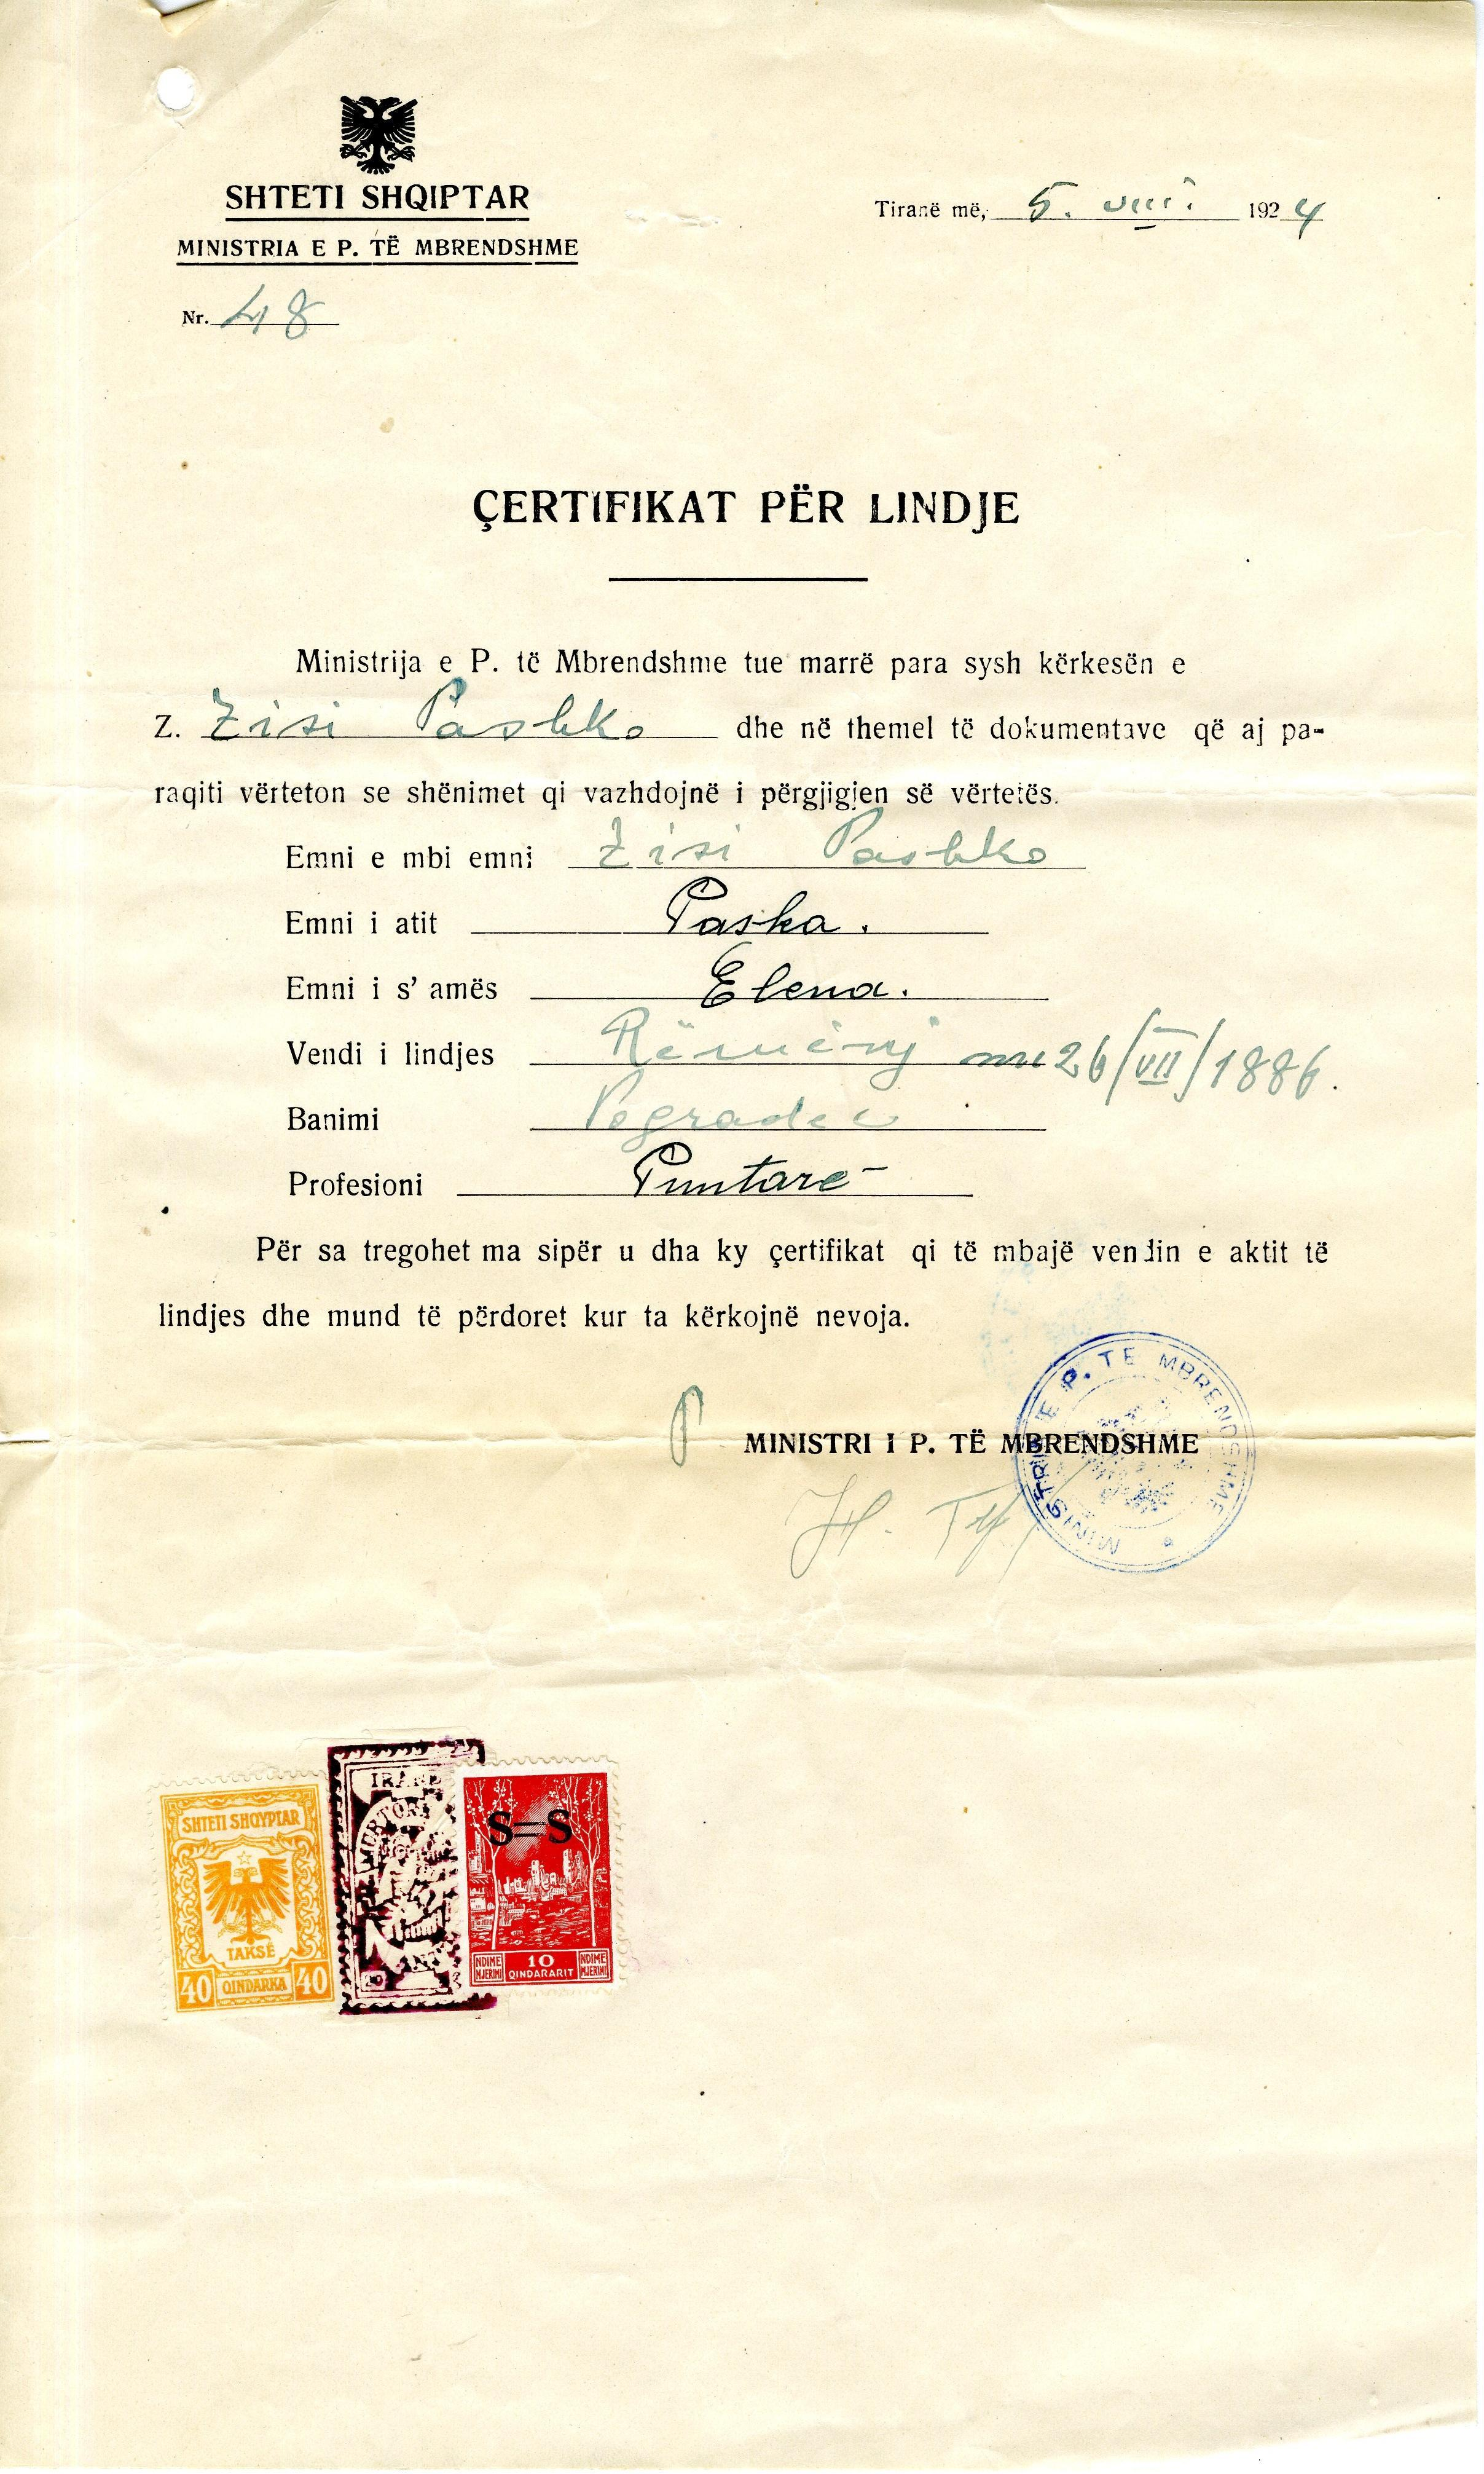 SHTETI SHQIPTAR
MINISTRIA E P. TË MBRENDSHME
Nr. 48
Tiranë më, 5. VIII. 1924
ÇERTIFIKAT PËR LINDJE
Ministrija e P. të Mbrendshme tue marrë para sysh kërkesën e
Z. Zisi Pashko dhe në themel të dokumentave që aj pa-
raqiti vërteton se shënimet qi vazhdojnë i përgjigjen së vërtetës.
Emni e mbi emni Zisi Pashko
Emni i atit Paska.
Emni i s' amës Elena.
Vendi i lindjes Rëmënj më 26/VII/1886.
Banimi Pogradec
Profesioni Puntarë
Për sa tregohet ma sipër u dha ky çertifikat qi të mbajë vendin e aktit të
lindjes dhe mund të përdoret kur ta kërkojnë nevoja.
P MINISTRI I P. TË MBRENDSHME
MINISTRIA E P. TE MBRENDSHME
SHTETI SHQYPTAR
TAKSË
40 QINDARKA 40
S=S
NDIME NJERIMI 10 QINDARARIT NDIME NJERIMI